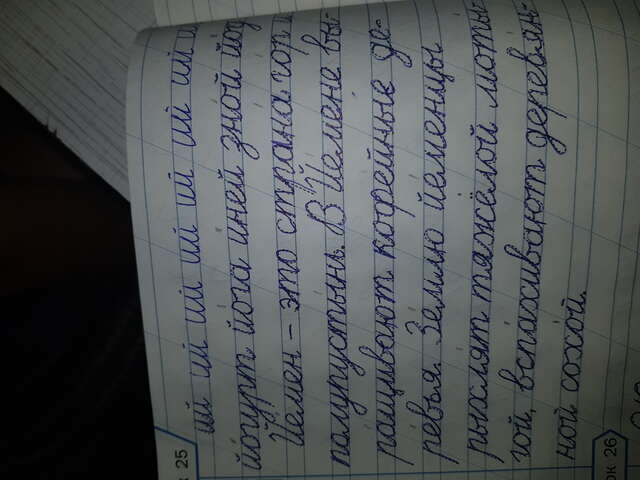 ий ий ий ий ий ий ий ий
йогурт йога иней зной йод
Йемен – это страна гор и
полупустынь. В Йемене вы-
ращивают кофейные де-
ревья. Землю йеменцы
рыхлят тяжёлой моты-
гой, вспахивают деревян-
ной сохой.
25
ок 26